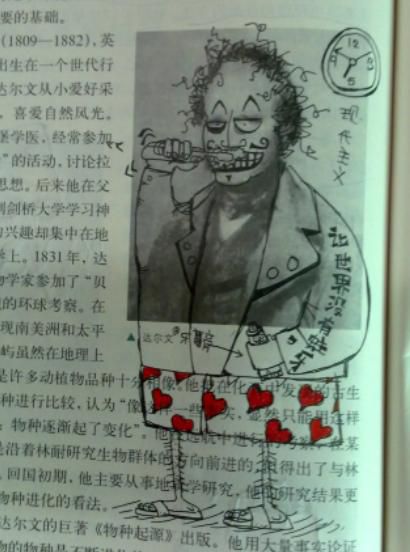 要的基础。
(1809—1882)，英
出生在一个世代行
达尔文从小爱好采
，喜爱自然风光。
堡学医，经常参加
”的活动，讨论拉
思想。后来他在父
到剑桥大学学习神
的兴趣却集中在地
学上。1831年，达
物学家参加了“贝
的环球考察。在
现南美洲和太平
屿虽然在地理上
是许多动植物品种十分相像。他
种进行比较，认为“像
：物种逐渐起了变化”。
是沿着林耐研究生物群体的方向前进的，得出了与林
。回国初期，他主要从事地 学研究，他的研究结果更
物种进化的看法。
达尔文的巨著《物种起源》出版。他用大量事实论证
12
5
现代主义
让世界没有蛀牙
▲ 达尔文 牙膏